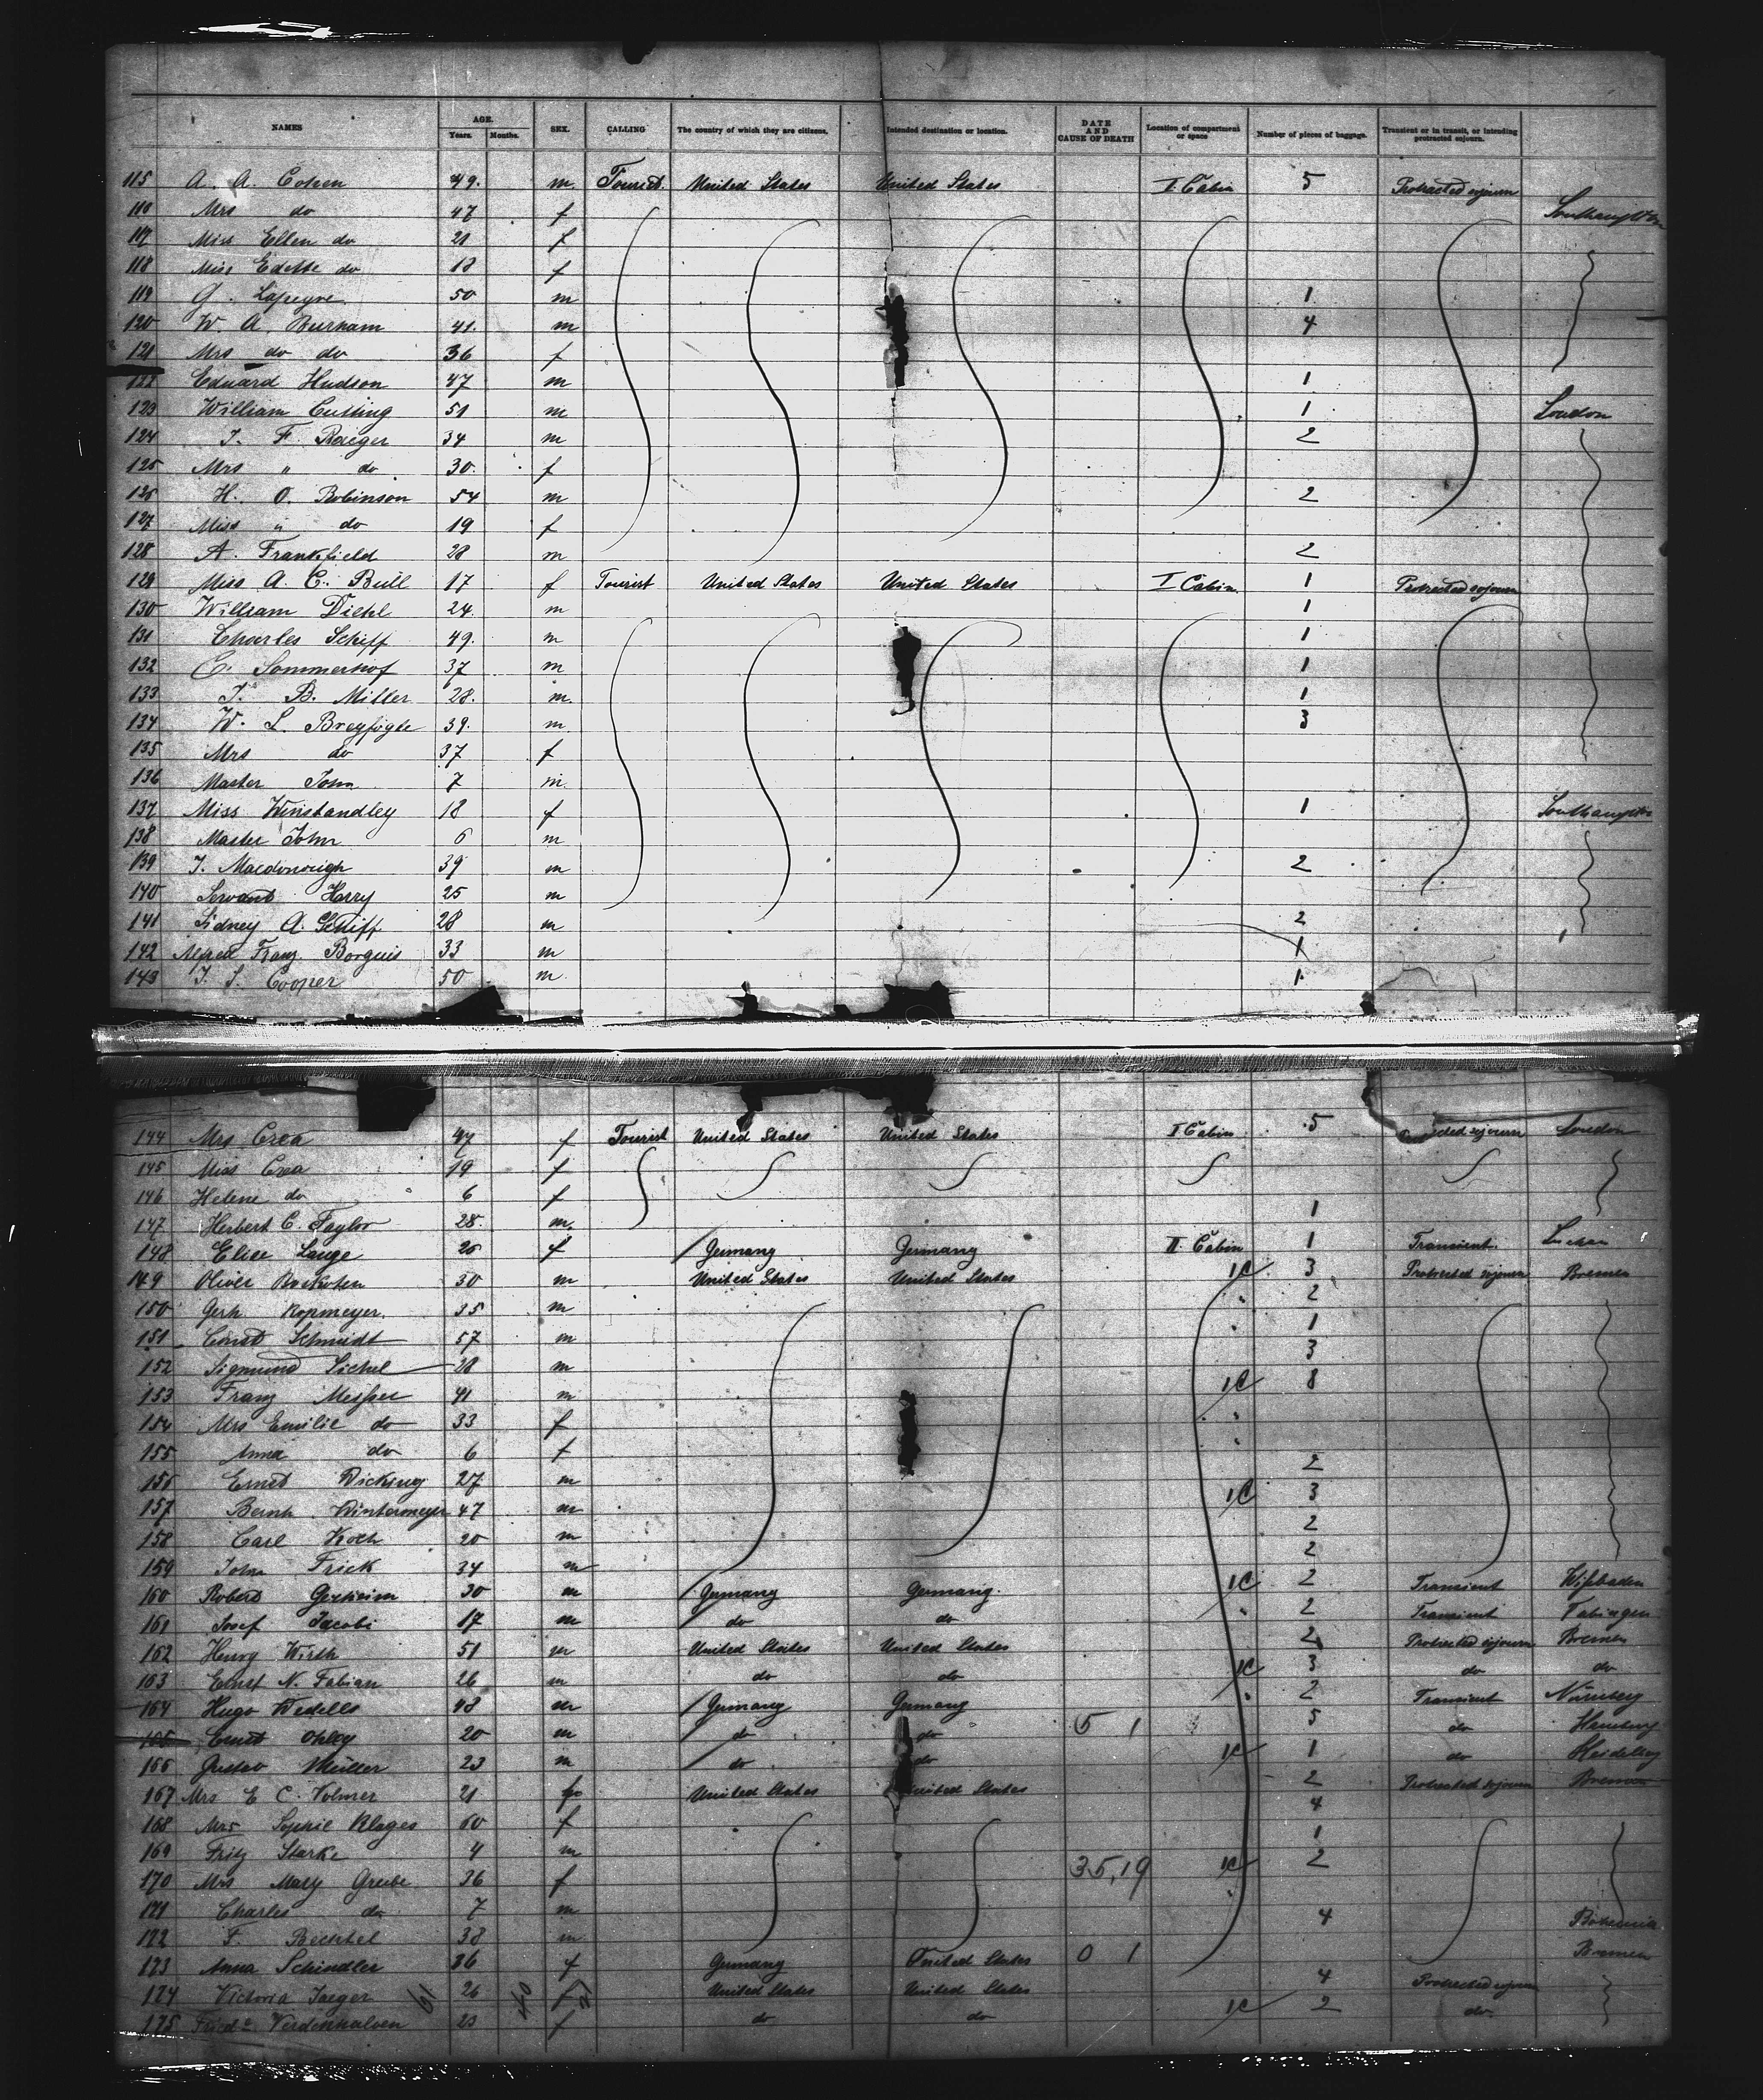 NAMES AGE. Years. Months. SEX. CALLING The country of which they are citizens. Intended destination or location. DATE AND CAUSE OF DEATH Location of compartment or space Number of pieces of baggage. Transient or in transit, or intending protracted sojourn.
115 A. A. Cohen 49. m Tourist. United States United States I. Cabin 5 Protracted sojourn
116 Mrs do 47 f Southampton
117 Miss Ellen do 21 f
118 Miss do 18 f
119 G. Lapeyre 50 m 1
120 W. A. Burham 41. m 4
121 Mrs do do 36 f
122 Eduard Hudson 47 m 1
123 William Cutting 51 m 1 London
124 J. F. Raeger 34 m 2
125 Mrs " do 30. f
126 H. O. Robinson 54 m 2
127 Miss " do 19 f
128 A. Frankfield 28 m 2
129 Miss A. C. Bull 17 f Tourist United States United States I Cabin 1 Protracted sojourn
130 William Diehl 24. m 1
131 Charles Schiff 49. m 1
132 E. Sommerhof 37 m 1
133 J. B. Miller 28. m. 1
134 W. L. Breyfogle 39. m 3
135 Mrs do 37 f
136 Master John 7 m.
137 Miss Winstandley 18 f 1 Southampton
138 Master John 6 m
139 J. Macdonough 39 m 2
140 Servant Harry 25 m
141 Sidney A. Schiff 28 m 2
142 Alfred Franz Borguis 33 m 1
143 J. S. Cooper 50 m. 1.
144 Mrs Crea 47 f Tourist United States United States I Cabin 5 sojourn London
145 Miss Crea 19 f
146 Helene do 6 f
147 Herbert C. Taylor 28. m. 1
148 Elise Lange f Germany Germany II. Cabin 1 Transient.
149 Oliver 30 m United States United States 1C 3 Protracted sojourn Bremen
150 Gerh Kopmeyer. 35 m 2
151 Schmidt 57 m 1
152 Sigmund Sichel 28 m 3
153 Franz Messer 41 m 1C 8
154 Mrs Emilie do 33 f
155 Anna do 6 f
156 Ernst Dicking 27 m 2
157 Bernh. Wintermeyer 47 m 1C 3
158 Carl Koch 20 m 2
159 John Frick 34 m 2
160 Robert Gerheim 30 m Germany Germany. 1C 2 Transient Wisbaden
161 Josef Jacobi 17 m do do 2 Transient Tubingen
162 Henry Wirth 51 m United States United States 2 Protracted sojourn Bremen
163 Ernst N. Fabian 26 m do do 1C 3 do do
164 Hugo Wedells 48 m Germany Germany 2 Transient Nürnberg
165 Ernst Ohley 20 m do do 5 1 5 do Hamburg
166 Gustav Müller 23 m do do 1C 1 do Heidelberg
167 Mrs E. C. Volmer 21 f United States United States 2 Protracted sojourn Bremen
168 Mrs Sophie Klages 60 f 4
169 Fritz Starke 4 m 1
170 Mrs Mary Greibe 36 f 35,19 1C 2
171 Charles do 7 m
172 F. Bechtel 38 m 4 Bohemia
173 Anna Schindler 36 f Germany United States 0 1 Bremen
174 Victoria Jaeger 26 f United States United States 4 Protracted sojourn
175 23 f do do 1C 2 do